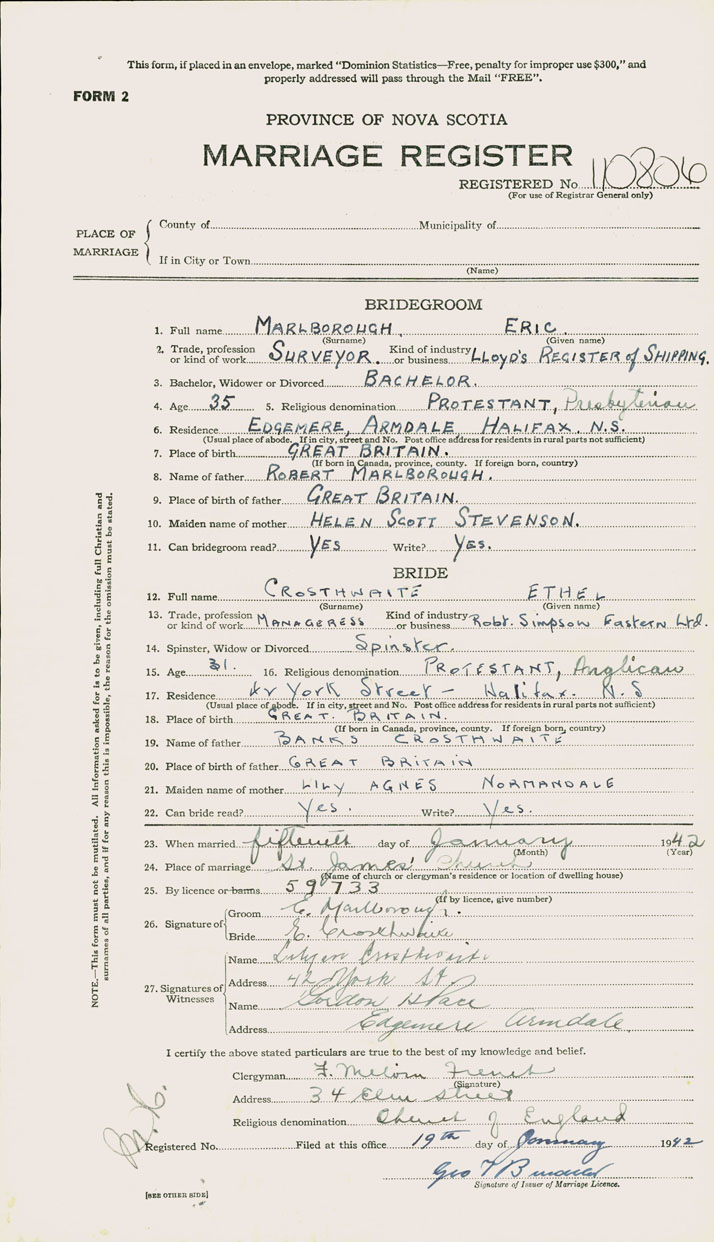 This form, if placed in an envelope, marked "Dominion Statistics—Free, penalty for improper use $300," and
properly addressed will pass through the Mail "FREE".
FORM 2
PROVINCE OF NOVA SCOTIA
MARRIAGE REGISTER
REGISTERED No. 110806
(For use of Registrar General only)
PLACE OF MARRIAGE
County of Municipality of
If in City or Town
(Name)
BRIDEGROOM
1. Full name MARLBOROUGH, ERIC
(Surname) (Given name)
2. Trade, profession or kind of work SURVEYOR. Kind of industry or business LLOYD'S REGISTER of SHIPPING.
3. Bachelor, Widower or Divorced BACHELOR.
4. Age 35 5. Religious denomination PROTESTANT, Presbyterian
6. Residence EDGEMERE, ARMDALE HALIFAX. N.S.
(Usual place of abode. If in city, street and No. Post office address for residents in rural parts not sufficient)
7. Place of birth GREAT BRITAIN.
(If born in Canada, province, county. If foreign born, country)
8. Name of father ROBERT MARLBOROUGH.
9. Place of birth of father GREAT BRITAIN.
10. Maiden name of mother HELEN SCOTT STEVENSON.
11. Can bridegroom read? YES Write? YES.
BRIDE
12. Full name CROSTHWAITE ETHEL
(Surname) (Given name)
13. Trade, profession or kind of work MANAGERESS Kind of industry or business Robt. Simpson Eastern Ltd.
14. Spinster, Widow or Divorced Spinster.
15. Age 31. 16. Religious denomination PROTESTANT, Anglican
17. Residence 42 York Street – Halifax. N.S
(Usual place of abode. If in city, street and No. Post office address for residents in rural parts not sufficient)
18. Place of birth GREAT. BRITAIN.
(If born in Canada, province, county. If foreign born, country)
19. Name of father BANKS CROSTHWAITE
20. Place of birth of father GREAT BRITAIN
21. Maiden name of mother LILY AGNES NORMANDALE
22. Can bride read? Yes. Write? Yes.
23. When married fifteenth day of January 1942
(Month) (Year)
24. Place of marriage St. James' Church
(Name of church or clergyman's residence or location of dwelling house)
25. By licence or banns 59733
(If by licence, give number)
26. Signature of
Groom E. Marlborough.
Bride E. Crosthwaite
27. Signatures of Witnesses
Name Crosthwaite
Address 42 York St.
Name Gordon Pace
Address Edgemere Armdale
I certify the above stated particulars are true to the best of my knowledge and belief.
Clergyman F. Melvin French
(Signature)
Address 34 Elm Street
Religious denomination Church of England
Registered No. Filed at this office 19th day of January 1942
Geo
Signature of Issuer of Marriage Licence.
[SEE OTHER SIDE]
NOTE.—This form must not be mutilated. All information asked for is to be given, including full Christian and
surnames of all parties, and if for any reason this is impossible, the reason for the omission must be stated.